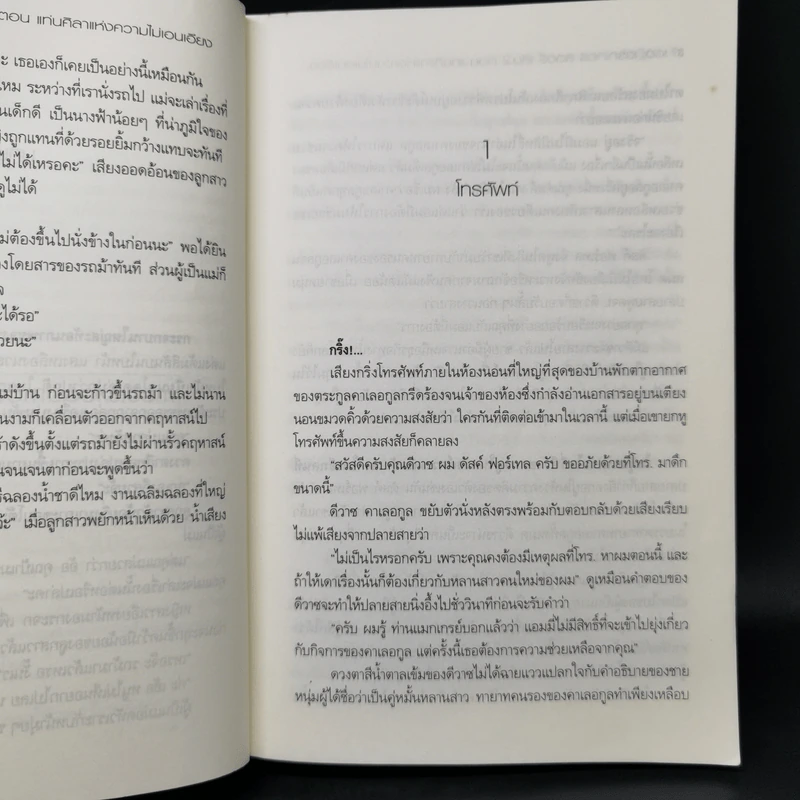 ตอน แท่นศิลาแห่งความไม่เอนเอียง
ะ เธอเองก็เคยเป็นอย่างนี้เหมือนกัน
ไหม ระหว่างที่เรานั่งรถไป แม่จะเล่าเรื่องที่
นเด็กดี เป็นนางฟ้าน้อยๆ ที่น่าภูมิใจของ
ถูกแทนที่ด้วยรอยยิ้มกว้างแทบจะทันที
ไม่ได้เหรอคะ” เสียงออดอ้อนของลูกสาว
ดูไม่ได้
ม่ต้องขึ้นไปนั่งข้างในก่อนนะ” พอได้ยิน
งโดยสารของรถม้าทันที ส่วนผู้เป็นแม่ก็
จ
ะได้รอ”
วยนะ”
แม่บ้าน ก่อนจะก้าวขึ้นรถม้า และไม่นาน
นงามก็เคลื่อนตัวออกจากคฤหาสน์ไป
าดังขึ้นตั้งแต่รถม้ายังไม่ผ่านรั้วคฤหาสน์
นจนเจนตาก่อนจะพูดขึ้นว่า
รีฉลองน้ำชาดีไหม งานเฉลิมฉลองที่ใหญ่
เมื่อลูกสาวพยักหน้าเห็นด้วย น้ำเสียง
1
โทรศัพท์
กริ๊ง!...
เสียงกริ่งโทรศัพท์ภายในห้องนอนที่ใหญ่ที่สุดของบ้านพักตากอากาศ
ของตระกูลคาเลอกูลกรีดร้องจนเจ้าของห้องซึ่งกำลังอ่านเอกสารอยู่บนเตียง
นอนขมวดคิ้วด้วยความสงสัยว่า ใครกันที่ติดต่อเข้ามาในเวลานี้ แต่เมื่อเขายกหู
โทรศัพท์ขึ้นความสงสัยก็คลายลง
“สวัสดีครับคุณดีวาซ ผม ดัสค์ ฟอร์เทล ครับ ขออภัยด้วยที่โทร. มาดึก
ขนาดนี้”
ดีวาซ คาเลอกูล ขยับตัวนั่งหลังตรงพร้อมกับตอบกลับด้วยเสียงเรียบ
ไม่แพ้เสียงจากปลายสายว่า
“ไม่เป็นไรหรอกครับ เพราะคุณคงต้องมีเหตุผลที่โทร. หาผมตอนนี้ และ
ถ้าให้เดาเรื่องนั้นก็ต้องเกี่ยวกับหลานสาวคนใหม่ของผม” ดูเหมือนคำตอบของ
ดีวาซจะทำให้ปลายสายนิ่งอึ้งไปชั่ววินาทีก่อนจะรับคำว่า
“ครับ ผมรู้ ท่านแมกเกรย์บอกแล้วว่า แอมมี่ไม่มีสิทธิ์ที่จะเข้าไปยุ่งเกี่ยว
กับกิจการของคาเลอกูล แต่ครั้งนี้เธอต้องการความช่วยเหลือจากคุณ”
ดวงตาสีน้ำตาลเข้มของดีวาซไม่ได้ฉายแววแปลกใจกับคำอธิบายของชาย
หนุ่มผู้ได้ชื่อว่าเป็นคู่หมั้นหลานสาว ทายาทคนรองของคาเลอกูลทำเพียงเหลือบ